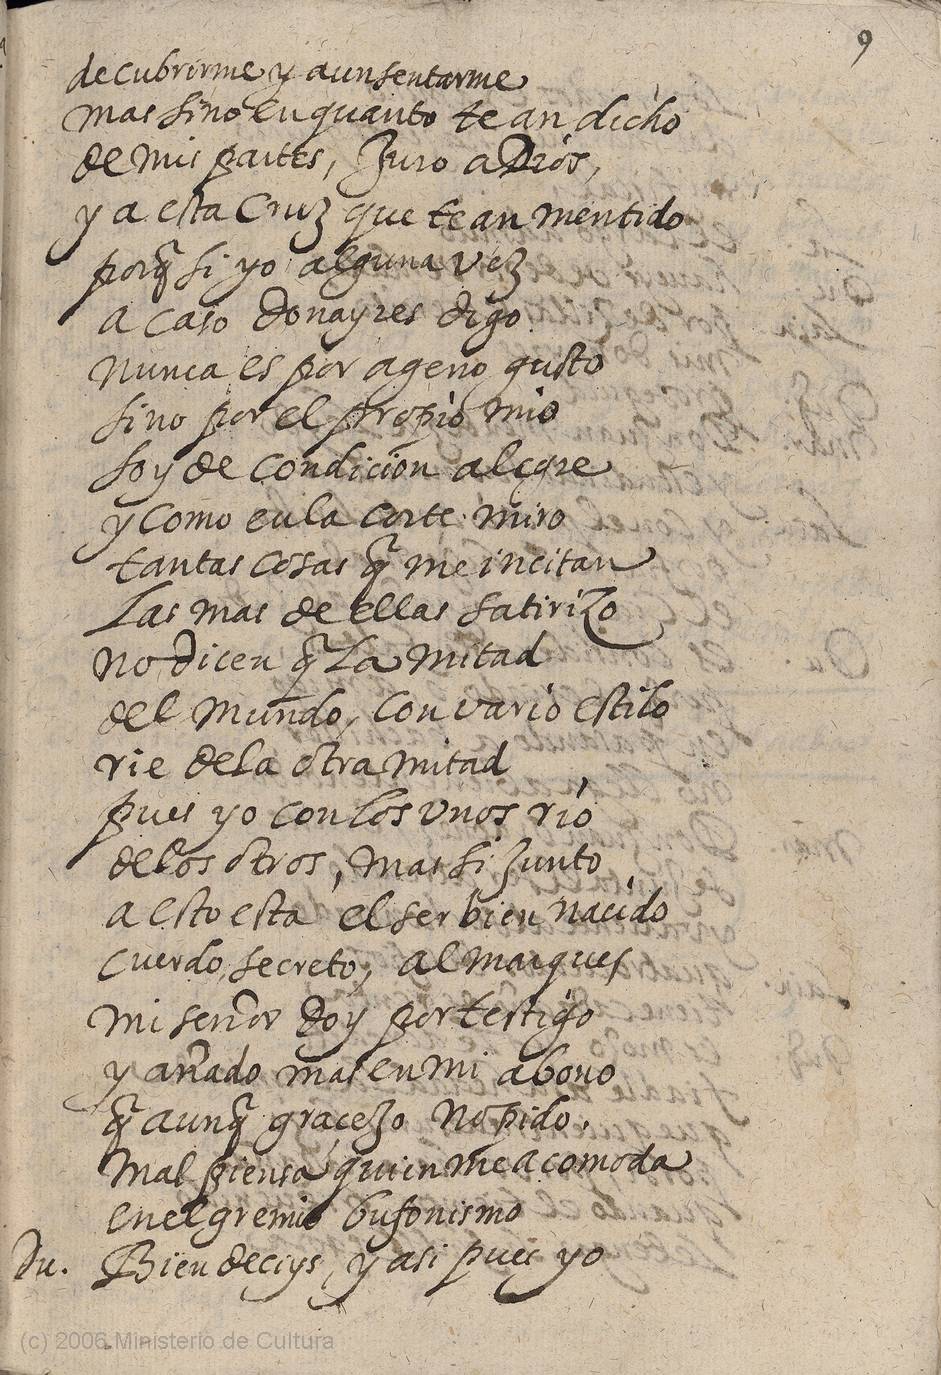 9
decubrirme y aun sentarme
mas sino en quanto te an dicho
de mis partes, Juro a Dios,
y a esta Cruz que te an mentido
porq̃ si yo alguna vez
a caso donayres digo.
nunca es por ageno gusto
sino por el propio mio
soy de condicion alegre
y como en la corte miro
tantas cosas q̃ me incitan
Las mas de ellas satirizo
no dicen q̃ La mitad
del mundo, con vario estilo
rie de la otra mitad
pues yo con los unos rio
de los otros, mas si junto
a esto esta el ser bien nacido
cuerdo, secreto, al marques
mi señor doy por testigo
y añado mas en mi abono
q̃ aunq̃ gracejo no pido.
mal piensa quien me acomoda
en el gremio bufonismo
Du. Bien decys, y asi pues yo
(c) 2006 Ministerio de Cultura